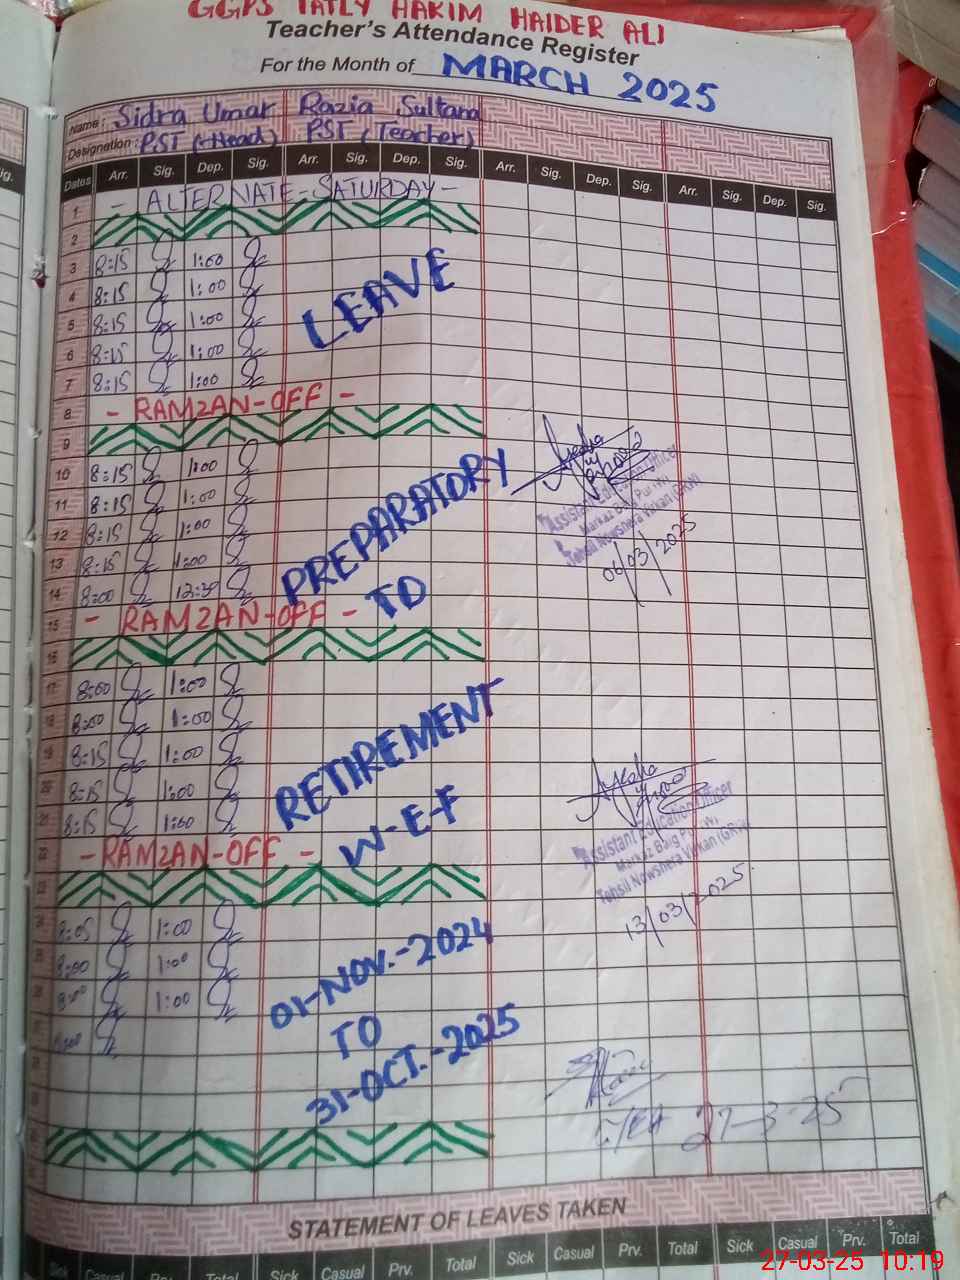 GGPS TATLY HAKIM HAIDER ALI
Teacher's Attendance Register
For the Month of MARCH 2025
Name: Sidra Umar Razia Sultana
Designation: PST (Head) PST (Teacher)
Dates Arr. Sig. Dep. Sig. Arr. Sig. Dep. Sig. Arr. Sig. Dep. Sig. Arr. Sig. Dep. Sig.
1 - ALTERNATE-SATURDAY-
2
3 8:15 1:00
4 8:15 1:00
5 8:15 1:00
6 8:15 1:00
7 8:15 1:00
LEAVE
8 - RAMZAN-OFF -
9
10 8:15 1:00
11 8:15 1:00
12 8:15 1:00
13 8:15 1:00
14 8:00 12:30
PREPARATORY
Assistant Education Officer
Tehsil Nowshera Virkan (GRW)
06/03/2025
15 - RAMZAN-OFF -
TO
16
17 8:00 1:00
18 8:00 1:00
19 8:15 1:00
20 8:15 1:00
21 8:15 1:00
RETIREMENT
22 - RAMZAN-OFF -
W-E-F
Assistant Education Officer
Tehsil Nowshera Virkan (GRW)
13/03/2025
23
24 8:05 1:00
25 8:00 1:00
26 8:00 1:00
27 8:00
01-NOV.-2024
TO
31-OCT.-2025
27-3-25
STATEMENT OF LEAVES TAKEN
Sick Casual Prv. Total Sick Casual Prv. Total Sick Casual Prv. Total
27-03-25 10:19